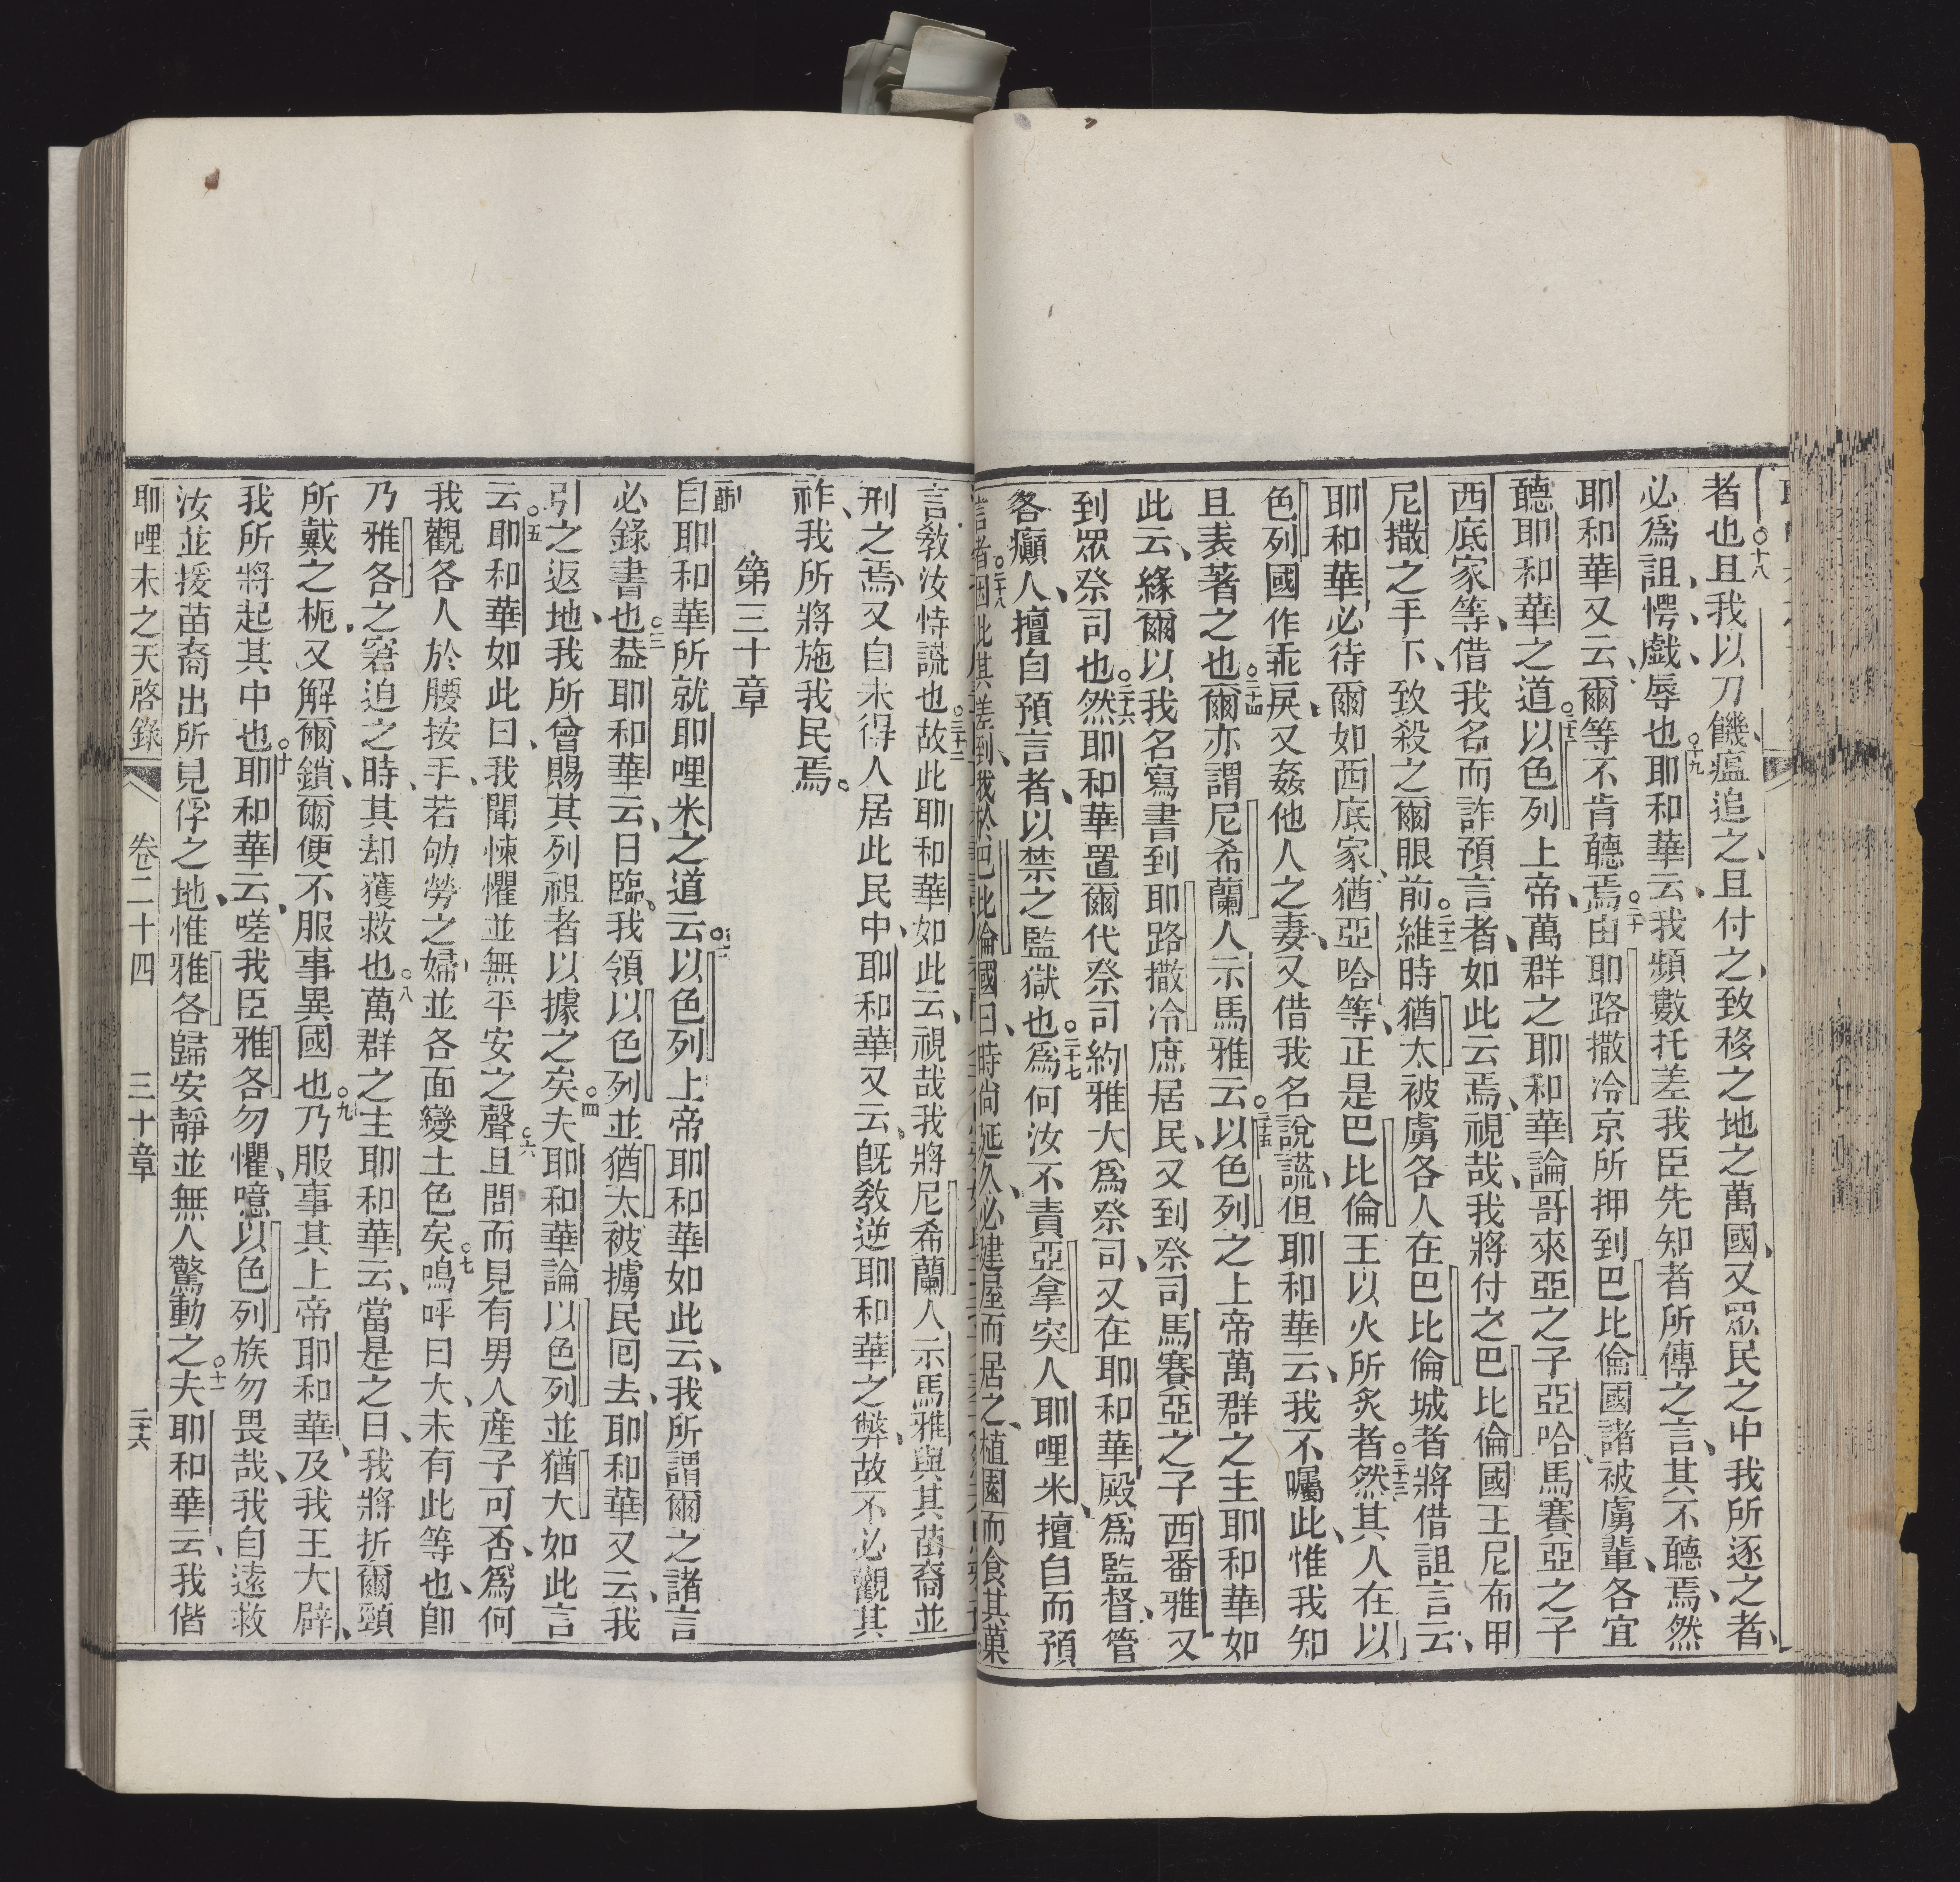 者也○十八且我以刀饑瘟追之、且付之、致移之地之萬國、又眾民之中我所逐之者、
必為詛、愕、戲、辱也○十九耶和華云、我頻數托差我臣先知者所傳之言、其不聽焉、然
耶和華又云、爾等不肯聽焉○二十由耶路撒冷京所押到巴比倫國諸被虜輩、各宜
聽耶和華之道○二十一以色列上帝、萬群之耶和華論哥來亞之子亞哈、馬賽亞之子
西底家等、借我名而詐預言者、如此云焉、視哉、我將付之巴比倫國王尼布甲
尼撒之手下、致殺之爾眼前○二十二維時猶太被虜各人在巴比倫城者將借詛言云、
耶和華必待爾如西底家、猶亞哈等、正是巴比倫王以火所炙者○二十三然其人在以
色列國作乖戾、又姦他人之妻、又借我名說謊、但耶和華云、我不囑此、惟我知
且表著之也○二十四爾亦謂尼希蘭人示馬雅云○二十五以色列之上帝萬群之主耶和華如
此云、緣爾以我名寫書到耶路撒冷庶居民、又到祭司馬賽亞之子西番雅又
到眾祭司也○二十六然耶和華置爾代祭司約雅大為祭司、又在耶和華殿為監督、管
各癲人、擅自預言者、以禁之監獄也○二十七為何汝不責亞拿突人耶哩米、擅自而預
言者○二十八因此其差到我於巴比倫國曰、時尚延久、必建屋而居之、植園而食其菓
言教汝恃謊也○三十二故此耶和華如此云、視哉我將尼希蘭人示馬雅與其苗裔並
刑之焉、又自未得人居此民中、耶和華又云、既教逆耶和華之弊、故不必觀其
祚、我所將施我民焉。
第三十章
自耶和華所就耶哩米之道云○二以色列上帝耶和華如此云、我所謂爾之諸言、
必錄書也○三葢耶和華云、日臨、我領以色列並猶太被擄民囘去、耶和華又云、我
引之返地、我所曾賜其列祖者以據之矣○四夫耶和華論以色列並猶太如此言
云○五耶和華如此曰、我聞悚懼並無平安之聲○六且問而見有男人產子可否、為何
我觀各人於腰按手、若劬勞之婦、並各面變土色矣○七嗚呼曰大、未有此等也、卽
乃雅各之窘迫之時、其却獲救也○八萬群之主耶和華云、當是之日、我將折爾頸
所戴之枙、又解爾鎖、爾便不服事異國也○九乃服事其上帝耶和華、及我王大辟、
我所將起其中也○十耶和華云、嗟我臣雅各勿懼、噫以色列族勿畏哉、我自遠救
汝並援苗裔出所見俘之地、惟雅各歸安靜並無人驚動之○十一夫耶和華云、我偕
耶哩米之天啓錄 卷二十四 三十章 三十六